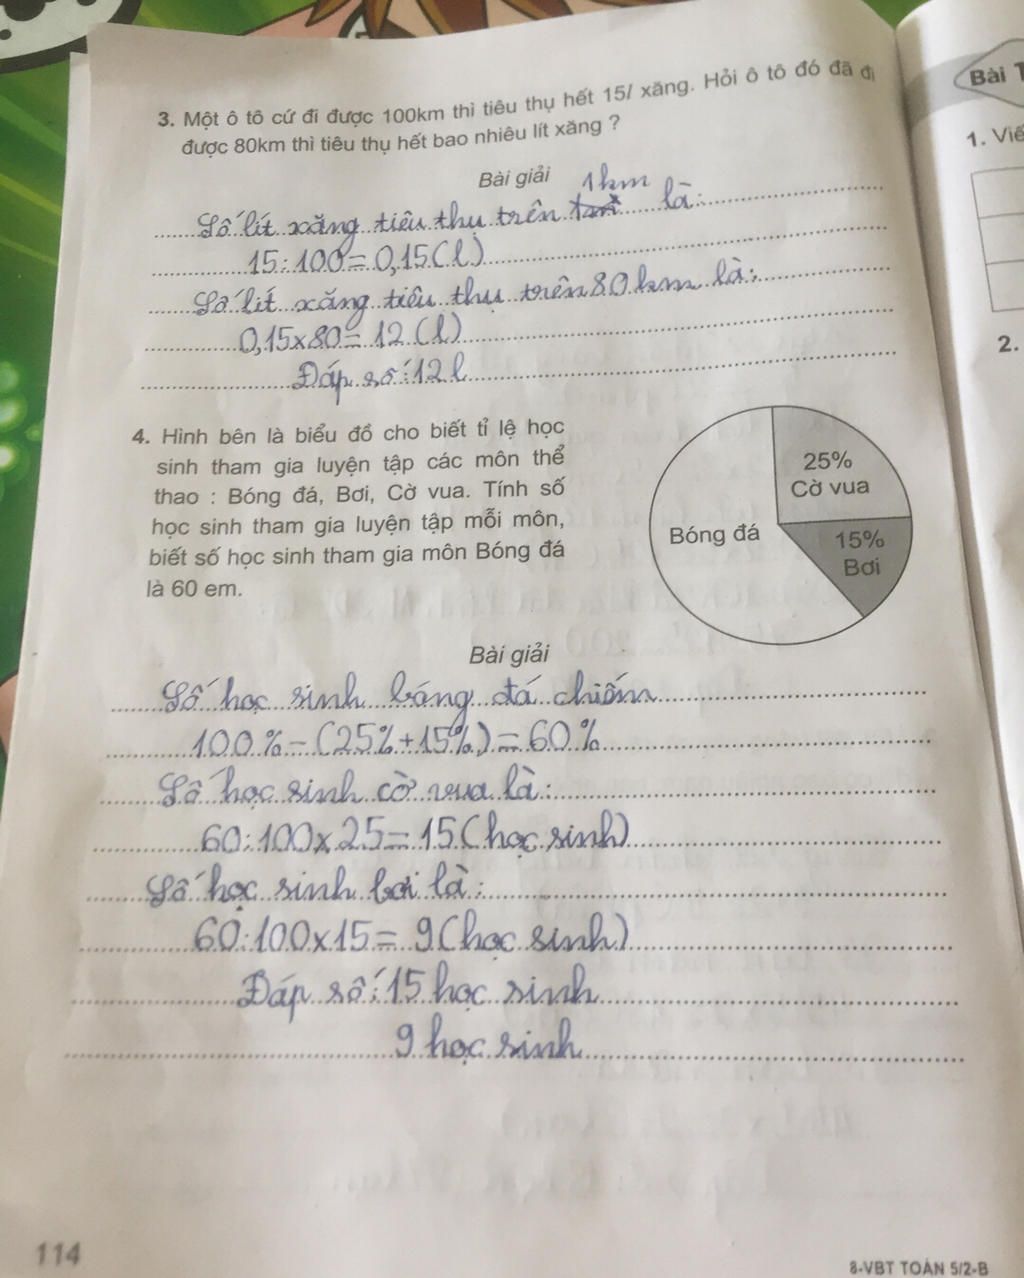 3. Một ô tô cứ đi được 100km thì tiêu thụ hết 15l xăng. Hỏi ô tô đó đã đi
được 80km thì tiêu thụ hết bao nhiêu lít xăng ?
Bài giải
1km
Số lít xăng tiêu thụ trên là:
15 : 100 = 0,15 (l)
Số lít xăng tiêu thụ trên 80 km là:
0,15 x 80 = 12 (l)
Đáp số : 12 l
4. Hình bên là biểu đồ cho biết tỉ lệ học
sinh tham gia luyện tập các môn thể
thao : Bóng đá, Bơi, Cờ vua. Tính số
học sinh tham gia luyện tập mỗi môn,
biết số học sinh tham gia môn Bóng đá
là 60 em.
25%
Cờ vua
Bóng đá
15%
Bơi
Bài giải
Số học sinh bóng đá chiếm
100% - (25% + 15%) = 60%
Số học sinh cờ vua là :
60 : 100 x 25 = 15 (học sinh)
Số học sinh bơi là :
60 : 100 x 15 = 9 (học sinh)
Đáp số : 15 học sinh
9 học sinh
114
8-VBT TOÁN 5/2-B
Bài
1. Viế
2.